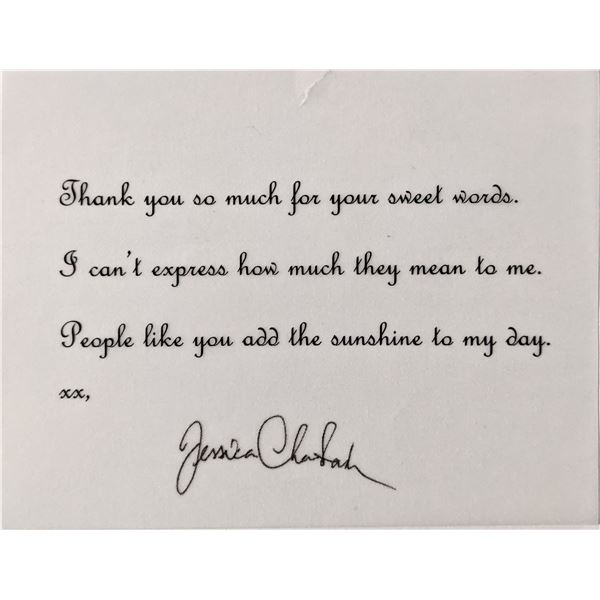 Thank you so much for your sweet words.
I can't express how much they mean to me.
People like you add the sunshine to my day.
xx,
Jessica